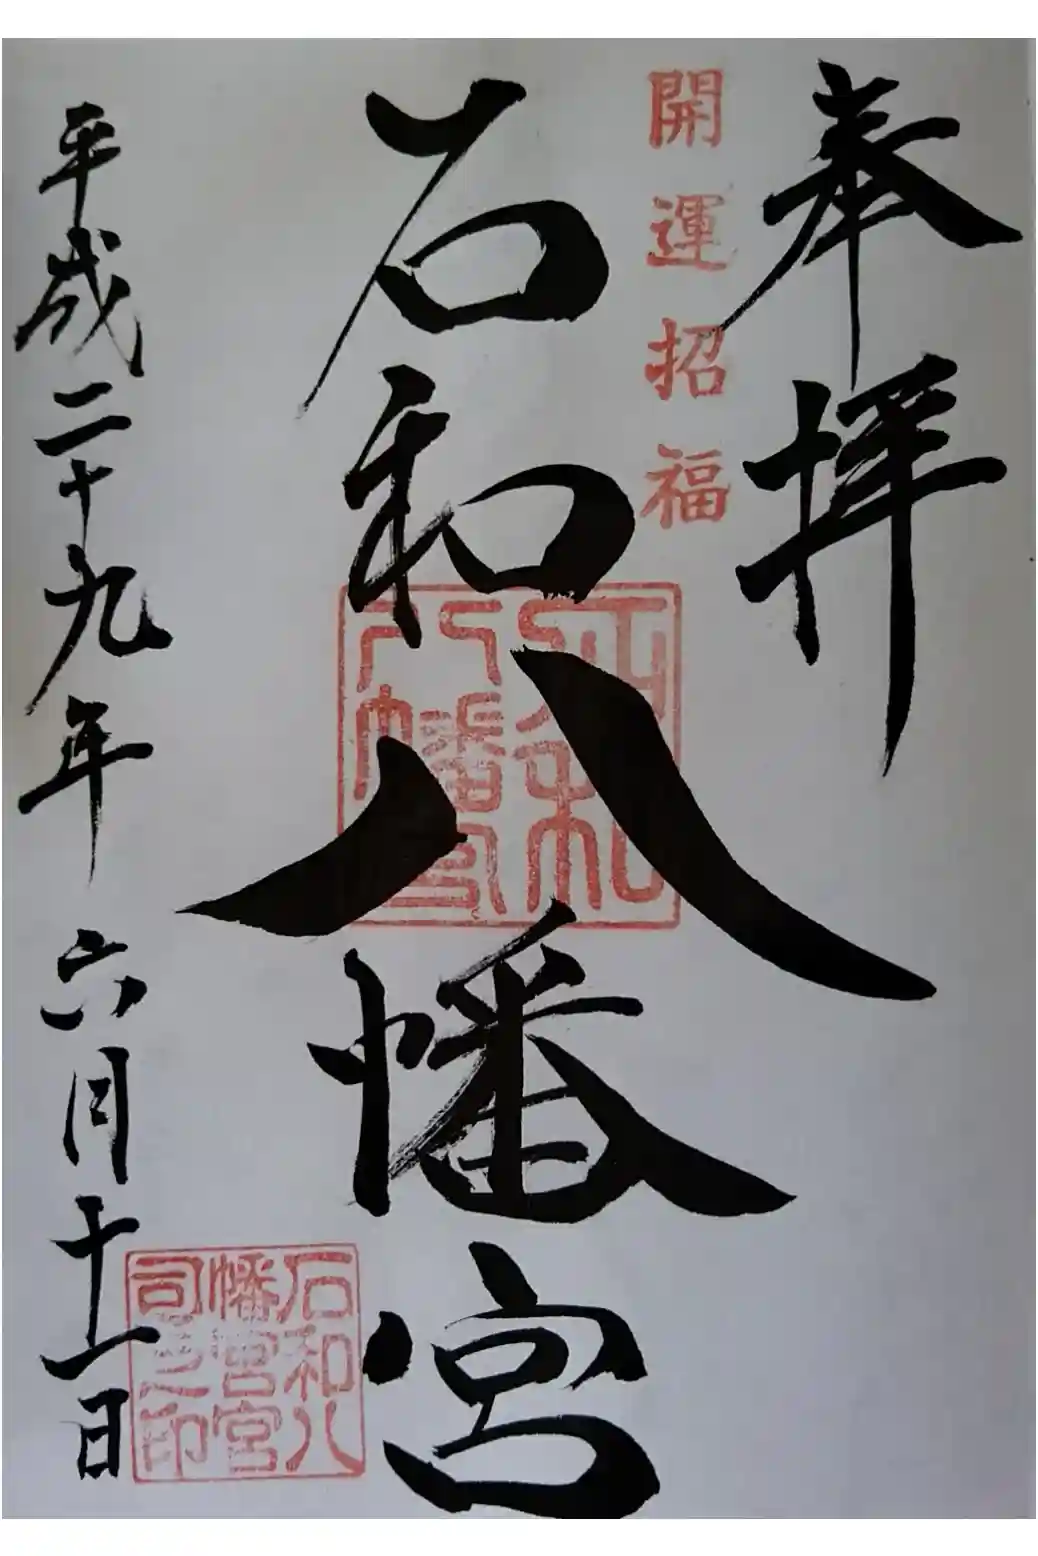 奉拝
開運招福
石和八幡宮
石和
八幡宮
平成二十九年六月十一日
石和八
幡宮宮
司之印